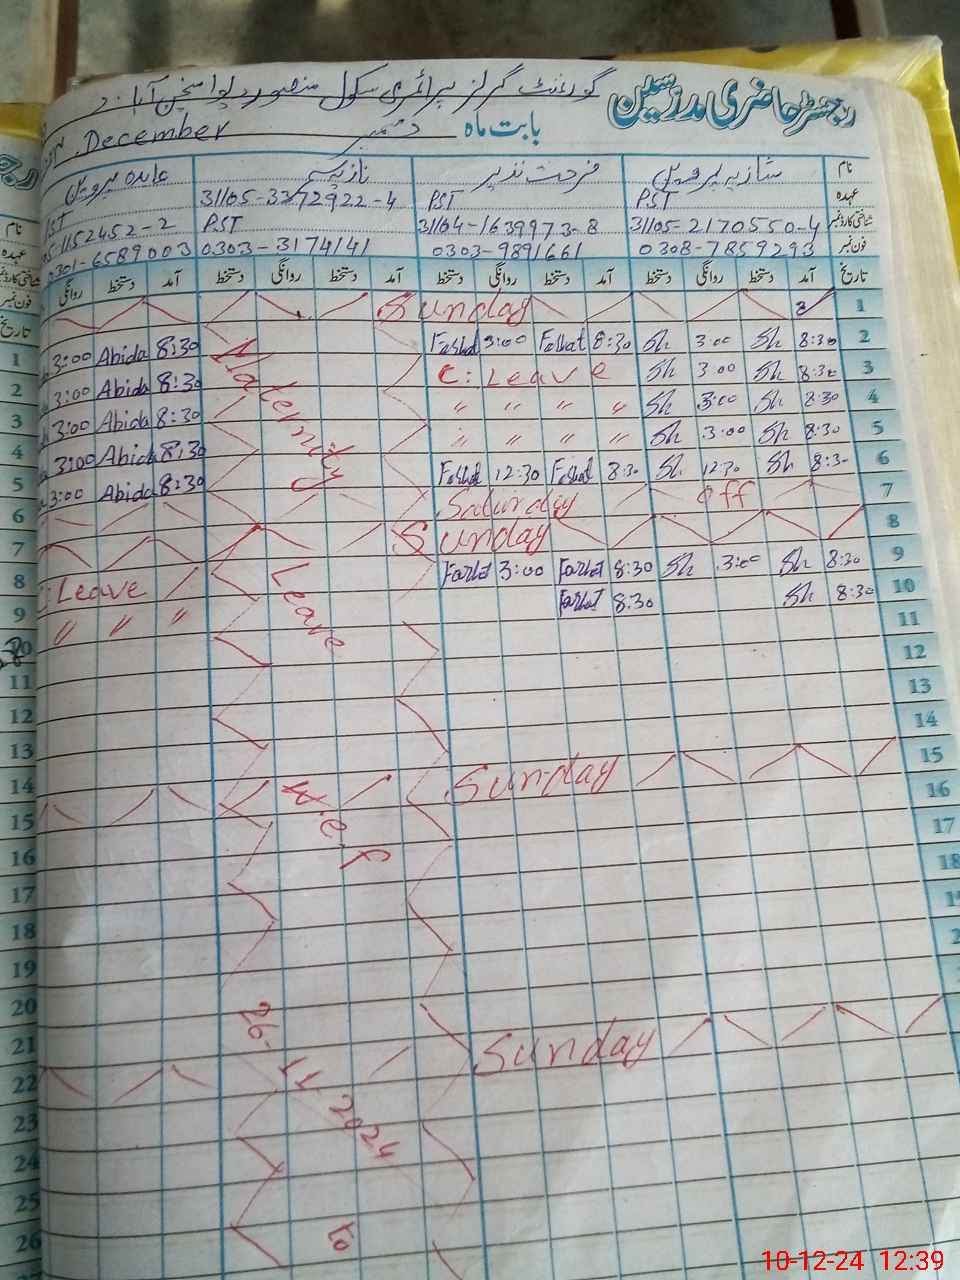 رجسٹر حاضری مدرسین گورنمنٹ گرلز پرائمری سکول منصور
بابت ماہ دسمبر December
نام شازیہ پروین فرحت نذیر نازیہ عابدہ پروین
عہدہ PST PST 31105-3372922-4
شناختی کارڈ نمبر 31105-2170550-4 31104-1639973-8 PST 1152452-2
فون نمبر 0308-7859293 0303-9891661 0303-3174141 0301-6589003
تاریخ آمد دستخط روانگی دستخط آمد دستخط روانگی دستخط آمد دستخط روانگی دستخط آمد دستخط روانگی
1 Sunday
2 8:30 Sh 3:00 Sh 8:30 Farhat 3:00 Farhat 8:30 Abida 3:00
3 8:30 Sh 3:00 Sh C: Leave 8:30 Abida 3:00
4 8:30 Sh 3:00 Sh " " " " 8:30 Abida 3:00
5 8:30 Sh 3:00 Sh " " " " 8:30 Abida 3:00
6 8:30 Sh 12:30 Sh 8:30 Farhat 12:30 Farhat 8:30 Abida 3:00
7 Saturday off
8 Sunday
9 8:30 Sh 3:00 Sh 8:30 Farhat 3:00 Farhat Leave
10 8:30 Sh 8:30 Farhat " " "
11
12
13
14
15 Sunday
16
17
18
Sunday
Maternity
Leave
w.e.f
26-11-2024
to
نام
عہدہ
فون نمبر
تاریخ
1
2
3
4
5
6
7
8
9
10
11
12
13
14
15
16
17
18
19
20
21
22
23
24
25
26
10-12-24 12:39